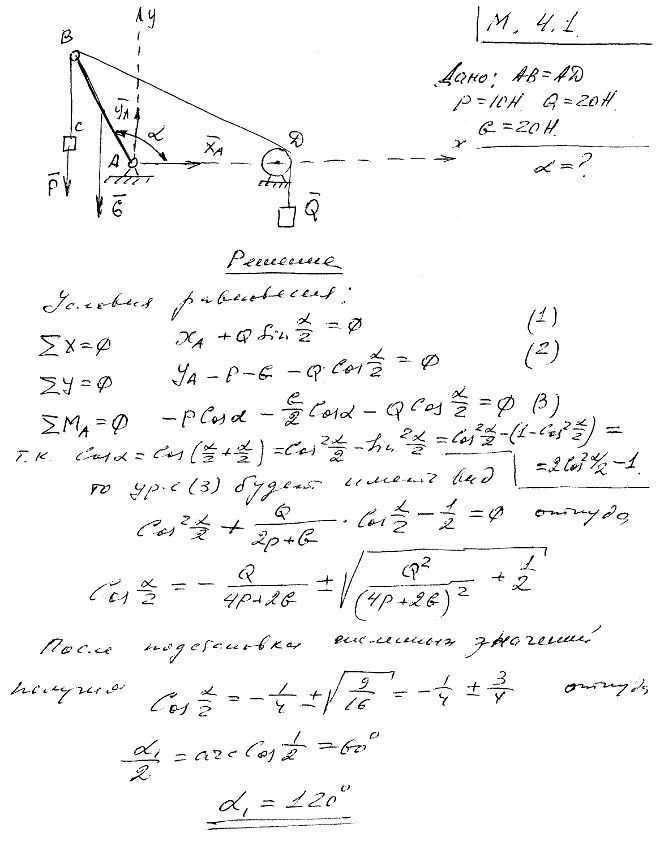 М. 4.1.
y
B
Дано: AB=AD
P=10Н. Q=20Н.
G=20Н.
α=?
Y̅A
α
C
A
X̅A
D
x
P̅
G̅
Q̅
Решение
Условия равновесия:
∑X=∅ XA + Q Sin α/2 = ∅ (1)
∑Y=∅ YA – P – G – Q Cos α/2 = ∅ (2)
∑MA=∅ –P Cos α – G/2 Cos α – Q Cos α/2 = ∅ (3)
Т.к. Cos α = Cos(α/2 + α/2) = Cos² α/2 – Sin² α/2 = Cos² α/2 – (1–Cos² α/2) =
= 2Cos² α/2 – 1.
то ур-е (3) будет иметь вид
Cos² α/2 + Q/(2P+G) · Cos α/2 – 1/2 = ∅ откуда,
Cos α/2 = – Q/(4P+2G) ± √(Q²/(4P+2G)² + 1/2)
После подстановки численных значений
получим Cos α/2 = – 1/4 ± √(9/16) = – 1/4 ± 3/4 откуда,
α₁/2 = arc Cos 1/2 = 60°
α₁ = 120°